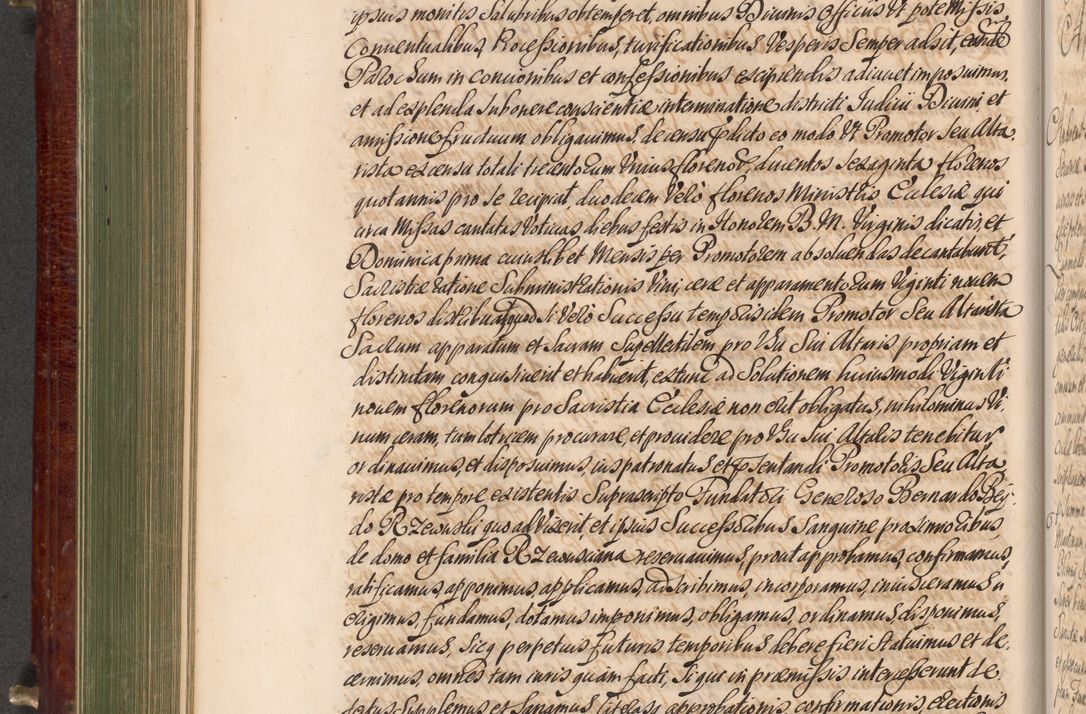 ipsius monitis Salubribus obtemperet, omnibus Divinis Officiis Ut pote Missis,
Conventualibus, Processionibus, turificationibus, Vesperis Semper adsit, eunde
Parochum in concionibus et confessionibus excipiendis adiuvet imposuimus,
et ad explenda sub onere conscientiæ interminatione districti Judicii Divini et
amissione fructuum obligavimus, de censu pdicto eo modo Ut Promotor Seu Alta
rista ex censu totali trecentorum Unius florenor, ducentos sexaginta florenos
quotannis pro se recipiat, duodecim Verò florenos Ministris Ecclesiæ qui
circa Missas cantatas Votivas diebus festis in Honorem B. M. Virginis dicatis, et
Dominica prima cuiuslibet Mensis per Promotorem absoluendas decantabunt,
Sacristiæ ratione Subministrationis Vini, ceræ et apparamentorum Viginti novem
florenos distribuat, quod Si Verò Successu temporis idem Promotor Seu Altarista
Sacrum apparatum et Sacram Supellectilem pro Usu Sui Altaris propriam et
distinctam conquisiverit et habuerit, extunc ad Solutionem huiusmodi Viginti
novem florenorum pro Sacristia Ecclesiæ non erit obligatus, nihilominus Vi,
num ceram, tum lotricem procurare, et providere pro Usu Sui Altaris tenebitur
ordinavimus, et disposuimus, ius patronatus et psentandi Promotoris Seu Alta,
ristæ pro tempore existentis Suprascripto Fundatori Generoso Bernardo Rey,
do Rzewuski quoad Vixerit, et ipsius Successoribus Sanguine proximioribus,
de domo et familia Rzewusciana reservavimus, prout approbamus, confirmamus,
ratificamus, apponimus, applicamus, adscribimus, incorporamus, inuisceramus,
erigimus, fundamus, dotamus, imponimus, obligamus, ordinamus, disponimus,
reservamus, Sicq perpetuis futuris temporibus debere fieri Statuimus et de,
cernimus, omnes tam iuris quam facti, Si qui in præmissis intercesserunt de
fectus Supplemus et Sanamus literas approbationis confirmationis erectionis